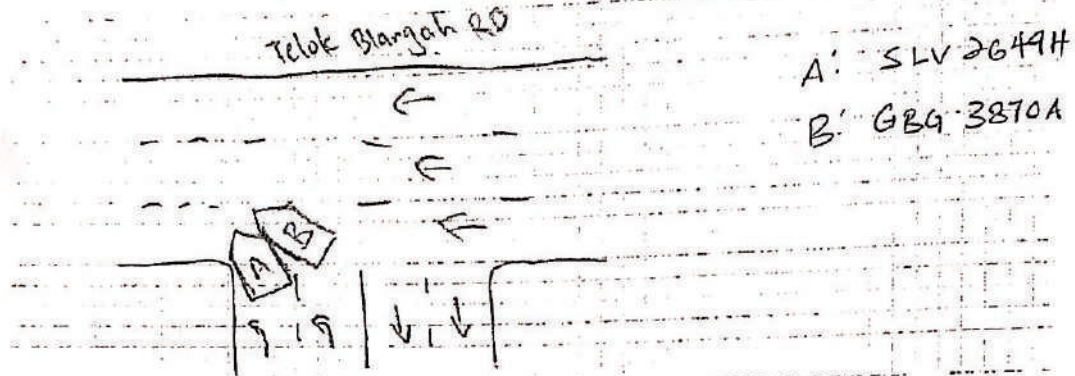 Telok Blangah RD
A: SLV 2649H
B: GBG 3870A
B
A